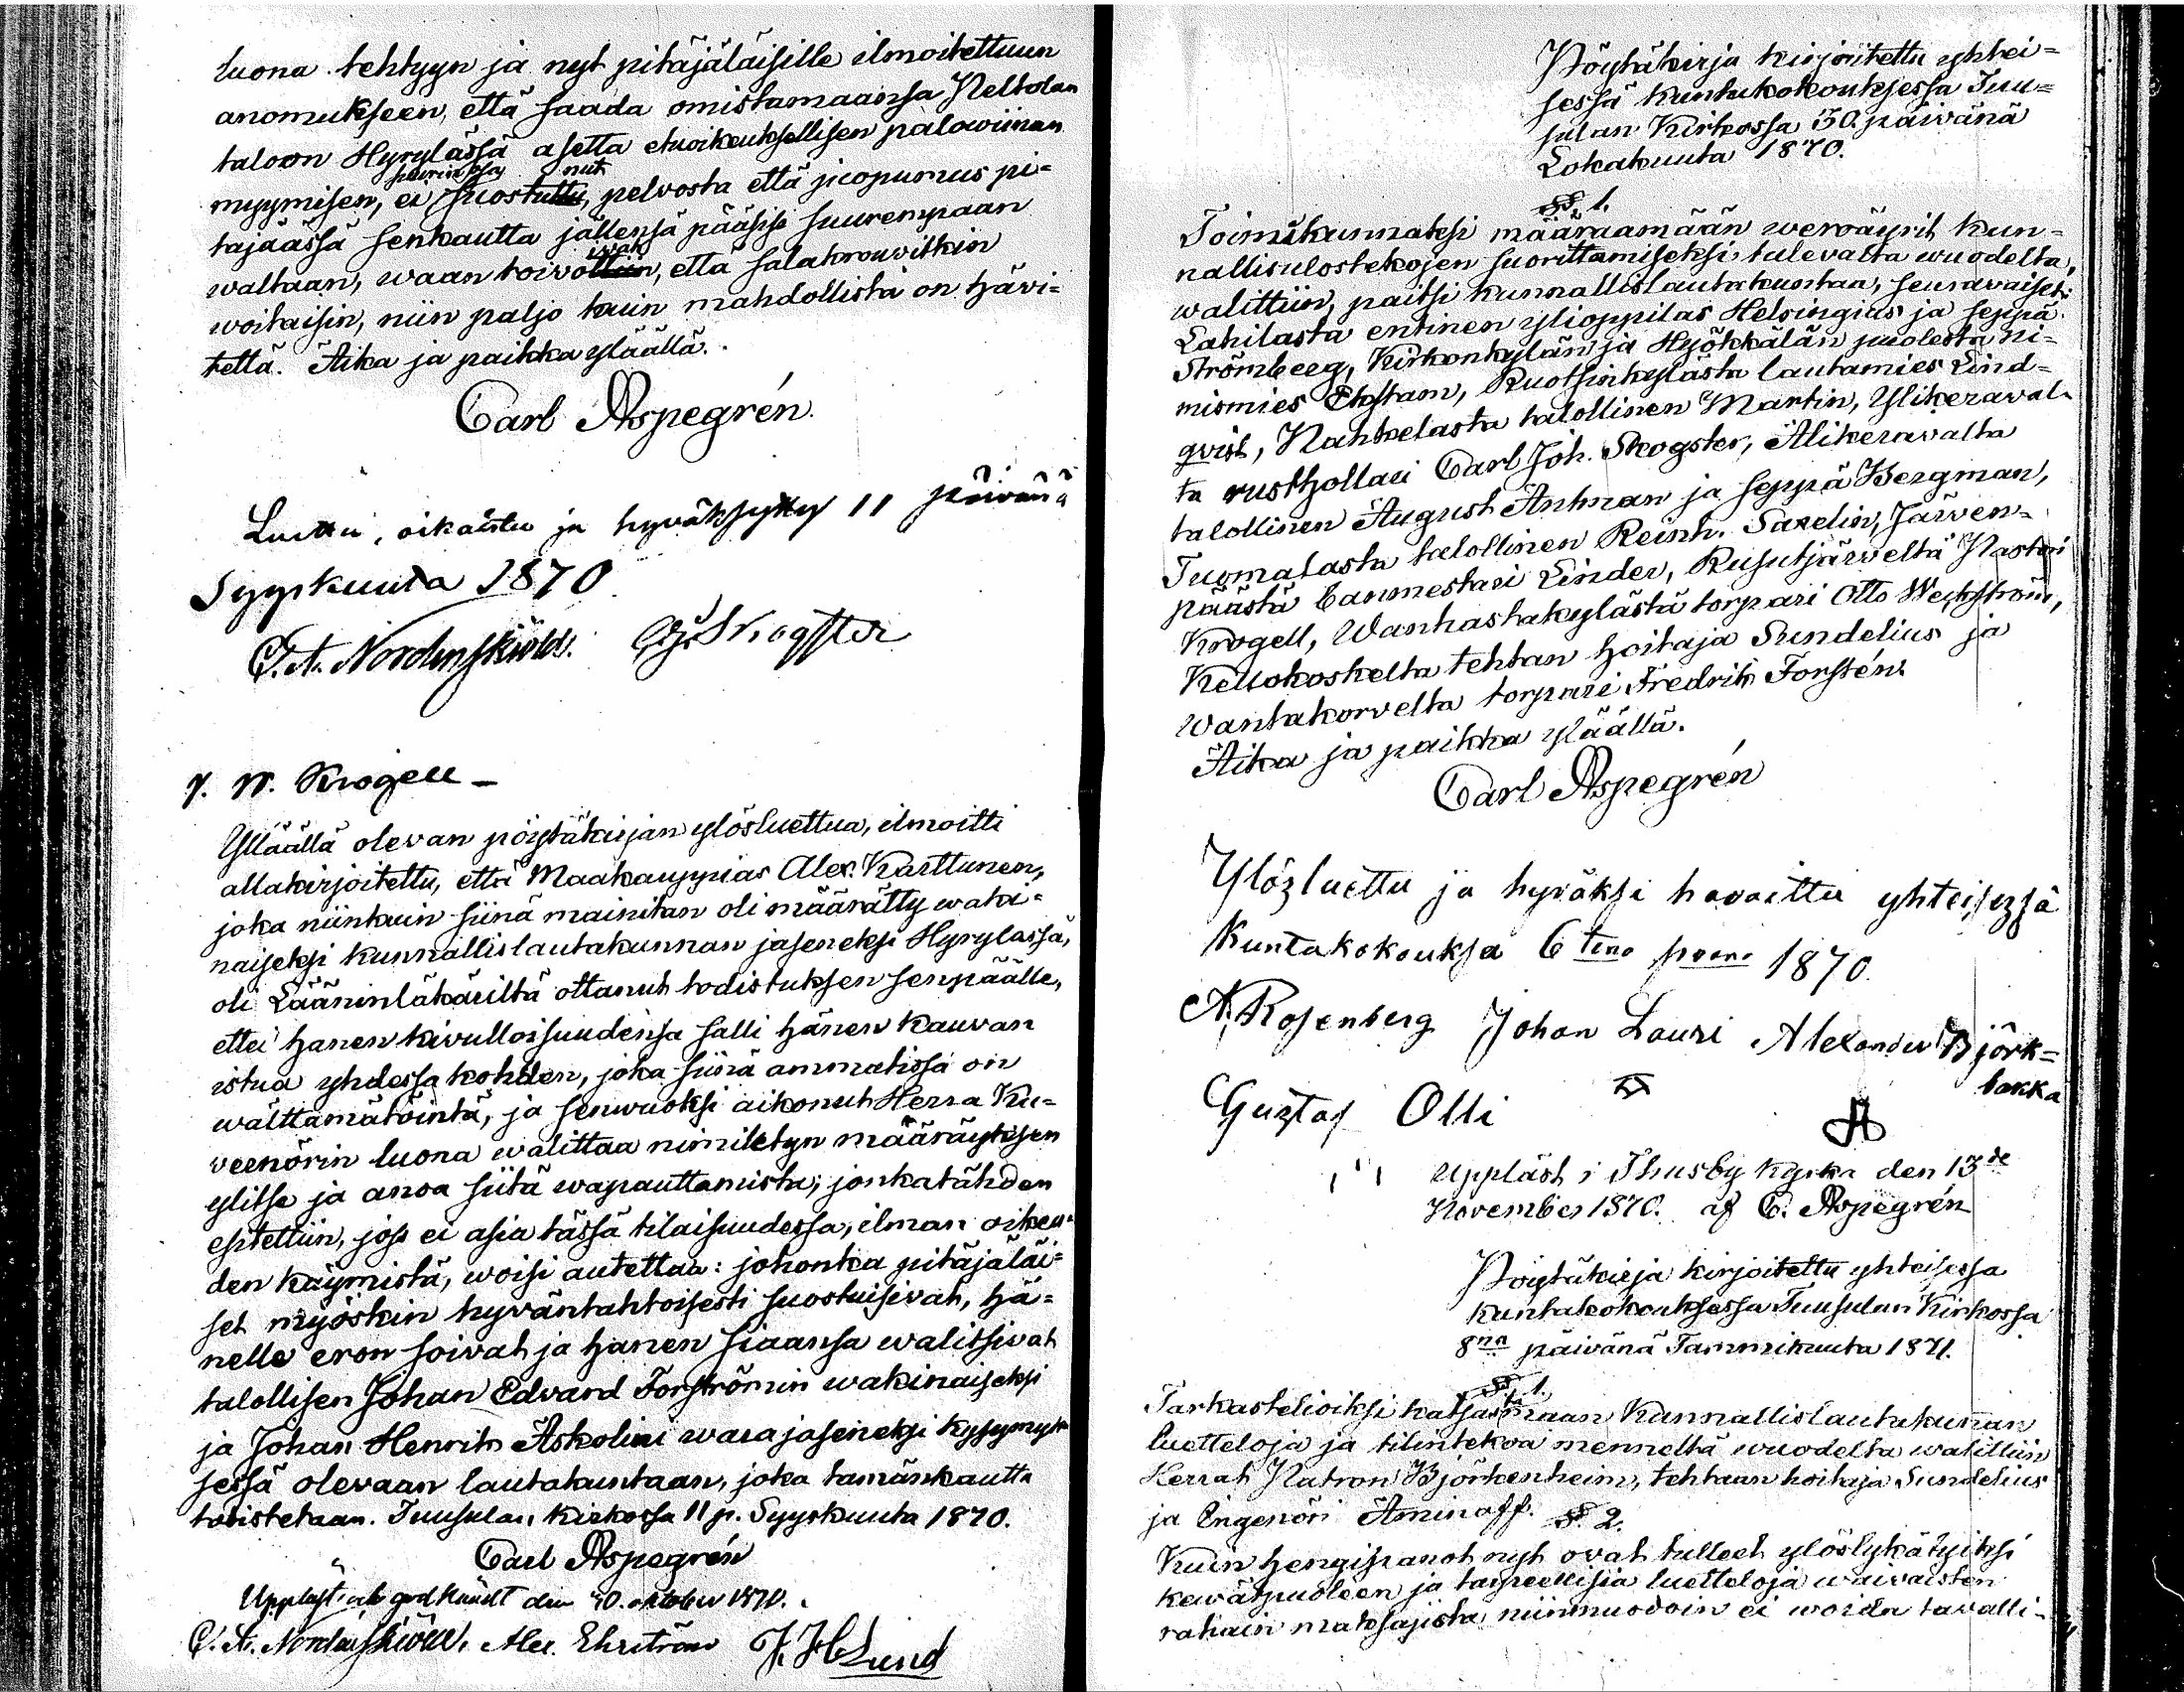 luona tehtyyn ja nyt pitäjäläisille ilmoitettuun
anomukseen, että saada omistamaansa Neltolan
taloon Hyrylässä asetta etuoikeuksellisen palowiinan
nut
myymisen, ei suostuttu, pelvosta että juopumus pi=
täjäässä senkautta jällensä pääsisi suurempaan
iwat
waltaan, waan toivottiin, että salakrouvitkin
woitaisin, niin paljo kuin mahdollista on häwi=
tettä. Aika ja paikka ylläällä.
Carl Aspegrén.
Luettu, oikaistu ja hyväksytty 11 päivänä
Syyskuuta 1870
C. A. Nordenskiöld. Skogster
J. W. Krogell –
Ylläällä olevan pöytäkirjan ylösluettua, ilmoitti
allakirjoitettu, että Maakauppias Alex. Karttunen,
joka niinkuin siinä mainitan oli määrätty waki=
naiseksi kunnallislautakunnan jaseneksi Hyrylässä,
oli Lääninläkäriltä ottanut todistuksen senpäälle,
ettei hänen kivulloisuudensa salli hänen kauvan
istua yhdessä kohden, joka siinä ammatissa on
wälttämätöintä, ja senwuoksi aikonut Herra Ku=
veenörin luona walittaa nimiletyn määräyksen
ylitse ja anoa siitä wapauttamista; jonkatähden
estettiin, jos ei asia tässä tilaisuudessa, ilman oikeu=
den käymistä, woisi autettaa: johonka pitäjäläi=
set myöskin hyväntahtoisesti suostuisivat, hä=
nelle eron soivat ja hänen siaansa walitsivat
talollisen Johan Edvard Forströmin wakinaiseksi
ja Johan Henrik Askolini warajaseneksi kysymyk=
sessä olevaan lautakuntaan, joka tämänkautta
todistetaan. Tuusulan kirkossa 11 p. Syyskuuta 1870.
Carl Aspegrén
Uppläst och godkändt den 30. oktober 1870.
C. A. Nordenskiöld, Alex. Ehrström J. H. Lund
Pöytäkirja kirjoitettu yhtei=
sessä kuntakokouksessa Tuu=
sulan Kirkossa 30. päivänä
Lokakuuta 1870.
§ 1.
Toimikunnaksi määräämään weroäyrit kun=
nallisulostekojen suorittamiseksi tulevalta wuodelta,
walittiin, paitsi kunnallislautakuntaa, seuravaiset:
Lahilasta entinen ylioppilas Helsingius ja seppä
Strömberg, Kirkonkylän ja Hyökkälän puolesta ni=
mismies Ekstam, Ruotsinkylästä lautamies Lind=
qvist, Nahkelasta talollinen Martin, Ylikeraval=
ta rusthollari Carl Joh. Skogster, Alikeravalta
talollinen August Antman ja seppä Bergman,
Tuomalasta talollinen Reinh. Saxelin, Järven=
päästä banmestari Linder, Rusutjärveltä Pastori
Krogell, Wanhastakylästä torpari Otto Weckström,
Kellokoskelta tehtan hoitaja Sundelius ja
Wantakorvelta torpari Fredrik Forstén.
Aika ja paikka ylläällä.
Carl Aspegrén
Ylözluettu ja hyväksi havaittu yhteisezsä
Kuntakokouksa 6 1870
A. Rosenberg Johan Lauri Alexander Björk=
bakka
Gustaf Olli
Uppläst i Thusby kyrka den 13de
November 1870. af C. Aspegrén
Pöytäkirja kirjoitettu yhteisessa
kuntakokouksessa Tuusulan Kirkossa
8na päivänä Tammikuuta 1871.
§ 1.
Tarkastelioiksi katsastamaan Kunnallislautakunnan
luetteloja ja tilintekoa menneltä wuodelta walittiin
Herrat Patron Björkenheim, tehtaan hoitaja Sundelius
ja Ingenöri Aminoff. § 2.
Kuin hengipanot nyt ovat tulleet ylöslykätyiksi
kewätpuoleen ja tarpeellisia luetteloja waivaisten
rahain maksajista niinmuodoin ei woida tavalli=